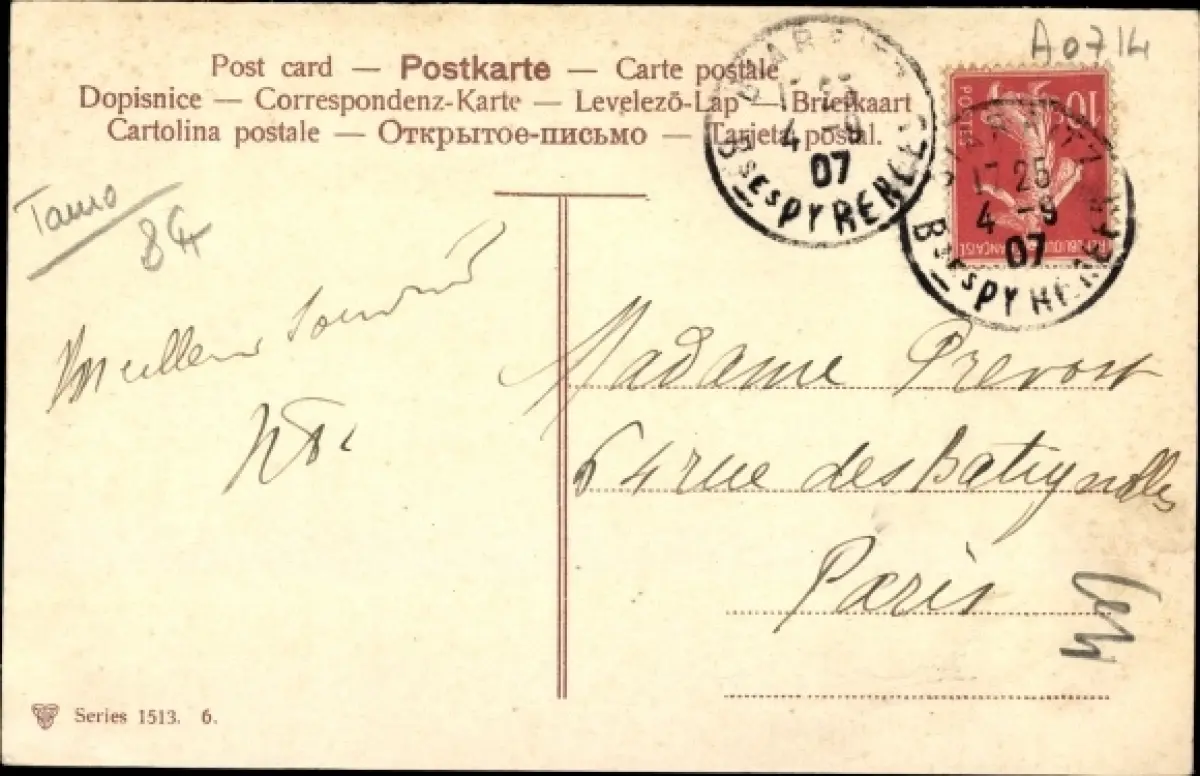 A0714
Post card — Postkarte — Carte postale
Dopisnice — Correspondenz-Karte — Levelezõ-Lap — Briefkaart
Cartolina postale — Открытое-письмо — Tarjeta postal.
BIARRITZ
4 -9
07
Bses PYRENEES
10
POSTES
BIARRITZ
17 25
4 -9
07
Bses PYRENEES
Meilleur Souvenir
Madame Prevost
64 rue des Batignolles
Paris
Series 1513. 6.